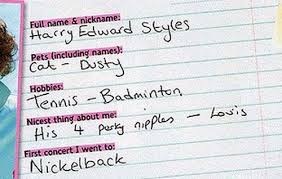 Full name & nickname:
Harry Edward Styles
Pets (including names):
Cat - Dusty
Hobbies:
Tennis - Badminton
Nicest thing about me:
His 4 perky nipples - Louis
First concert I went to:
Nickelback